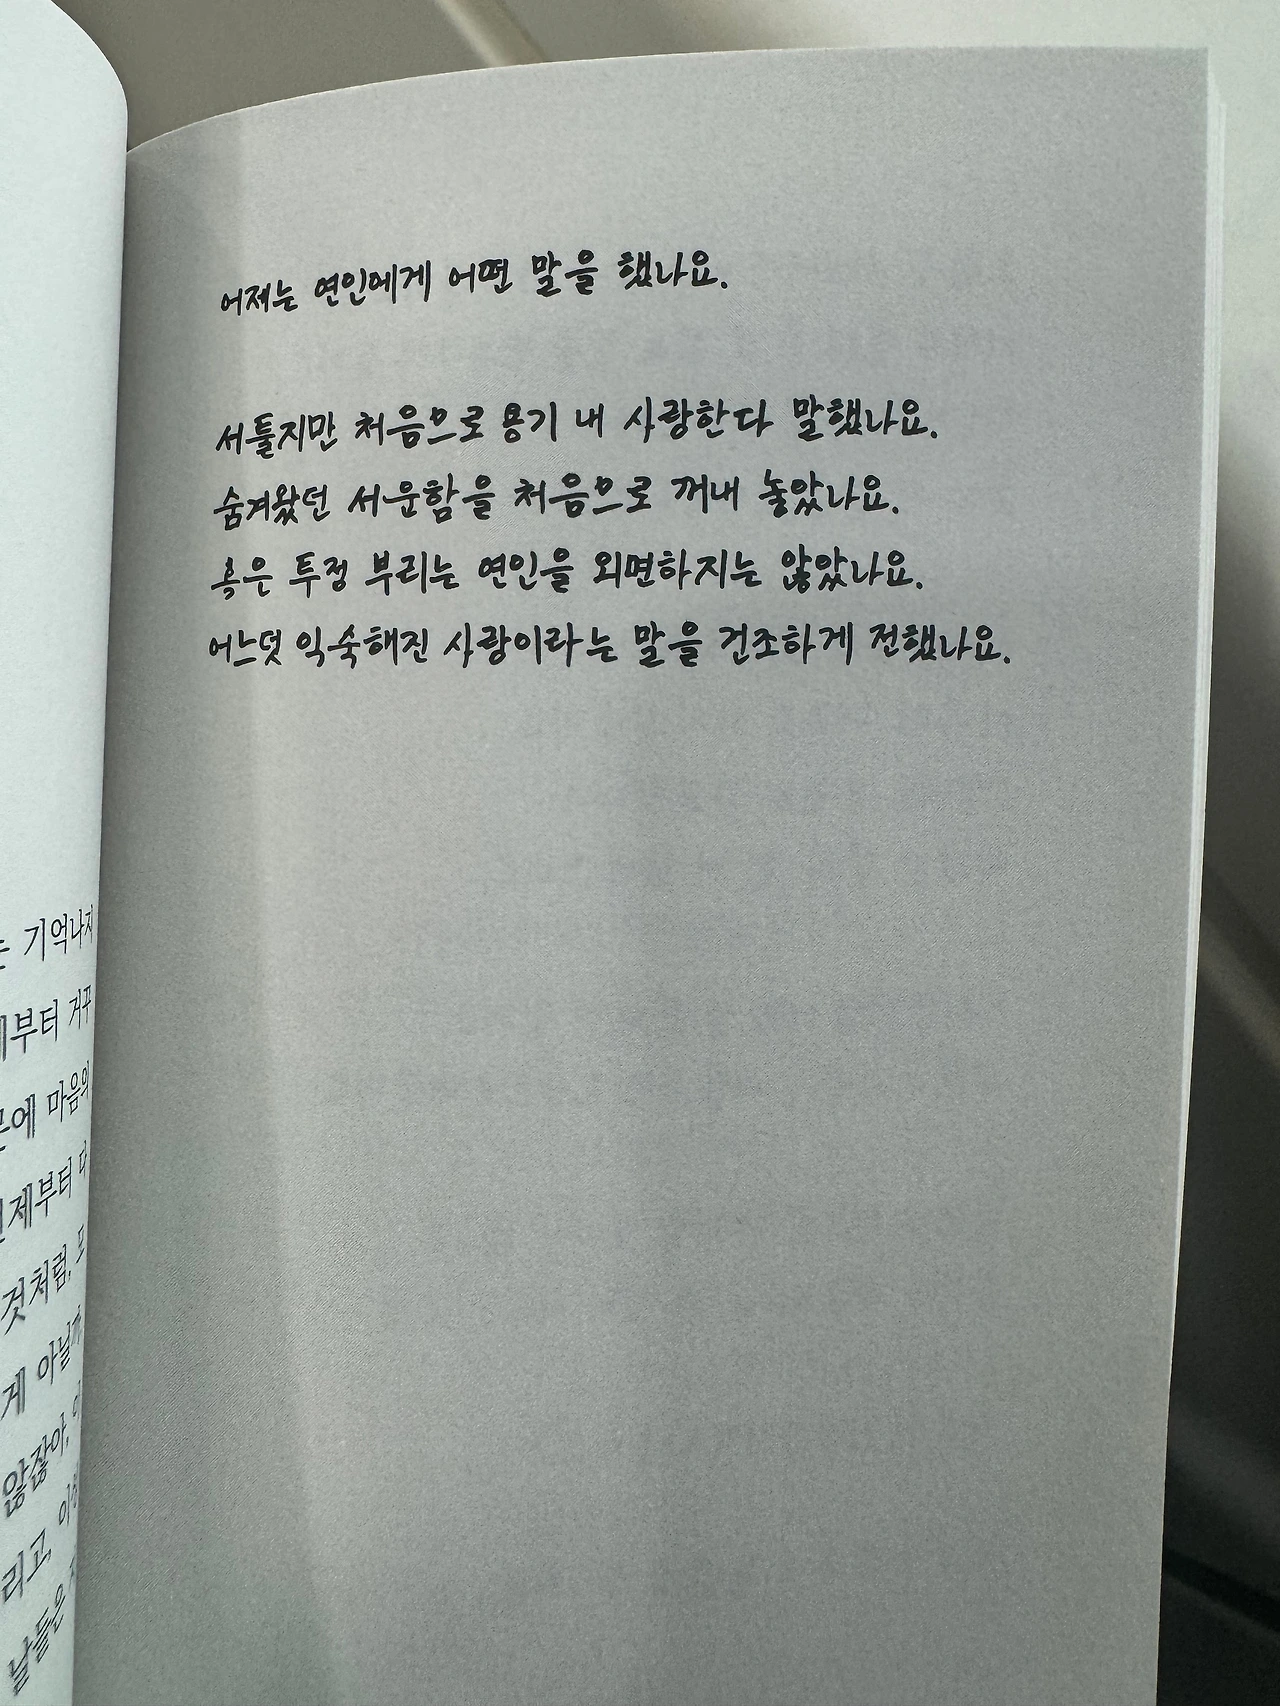 는 기억나지
부터 거꾸
에 마음의
제부터 다
것처럼, 또
게 아닐까
않잖아,
리고,
날들은
어제는 연인에게 어떤 말을 했나요.
서툴지만 처음으로 용기 내 사랑한다 말했나요.
숨겨왔던 서운함을 처음으로 꺼내 놓았나요.
혹은 투정 부리는 연인을 외면하지는 않았나요.
어느덧 익숙해진 사랑이라는 말을 건조하게 전했나요.